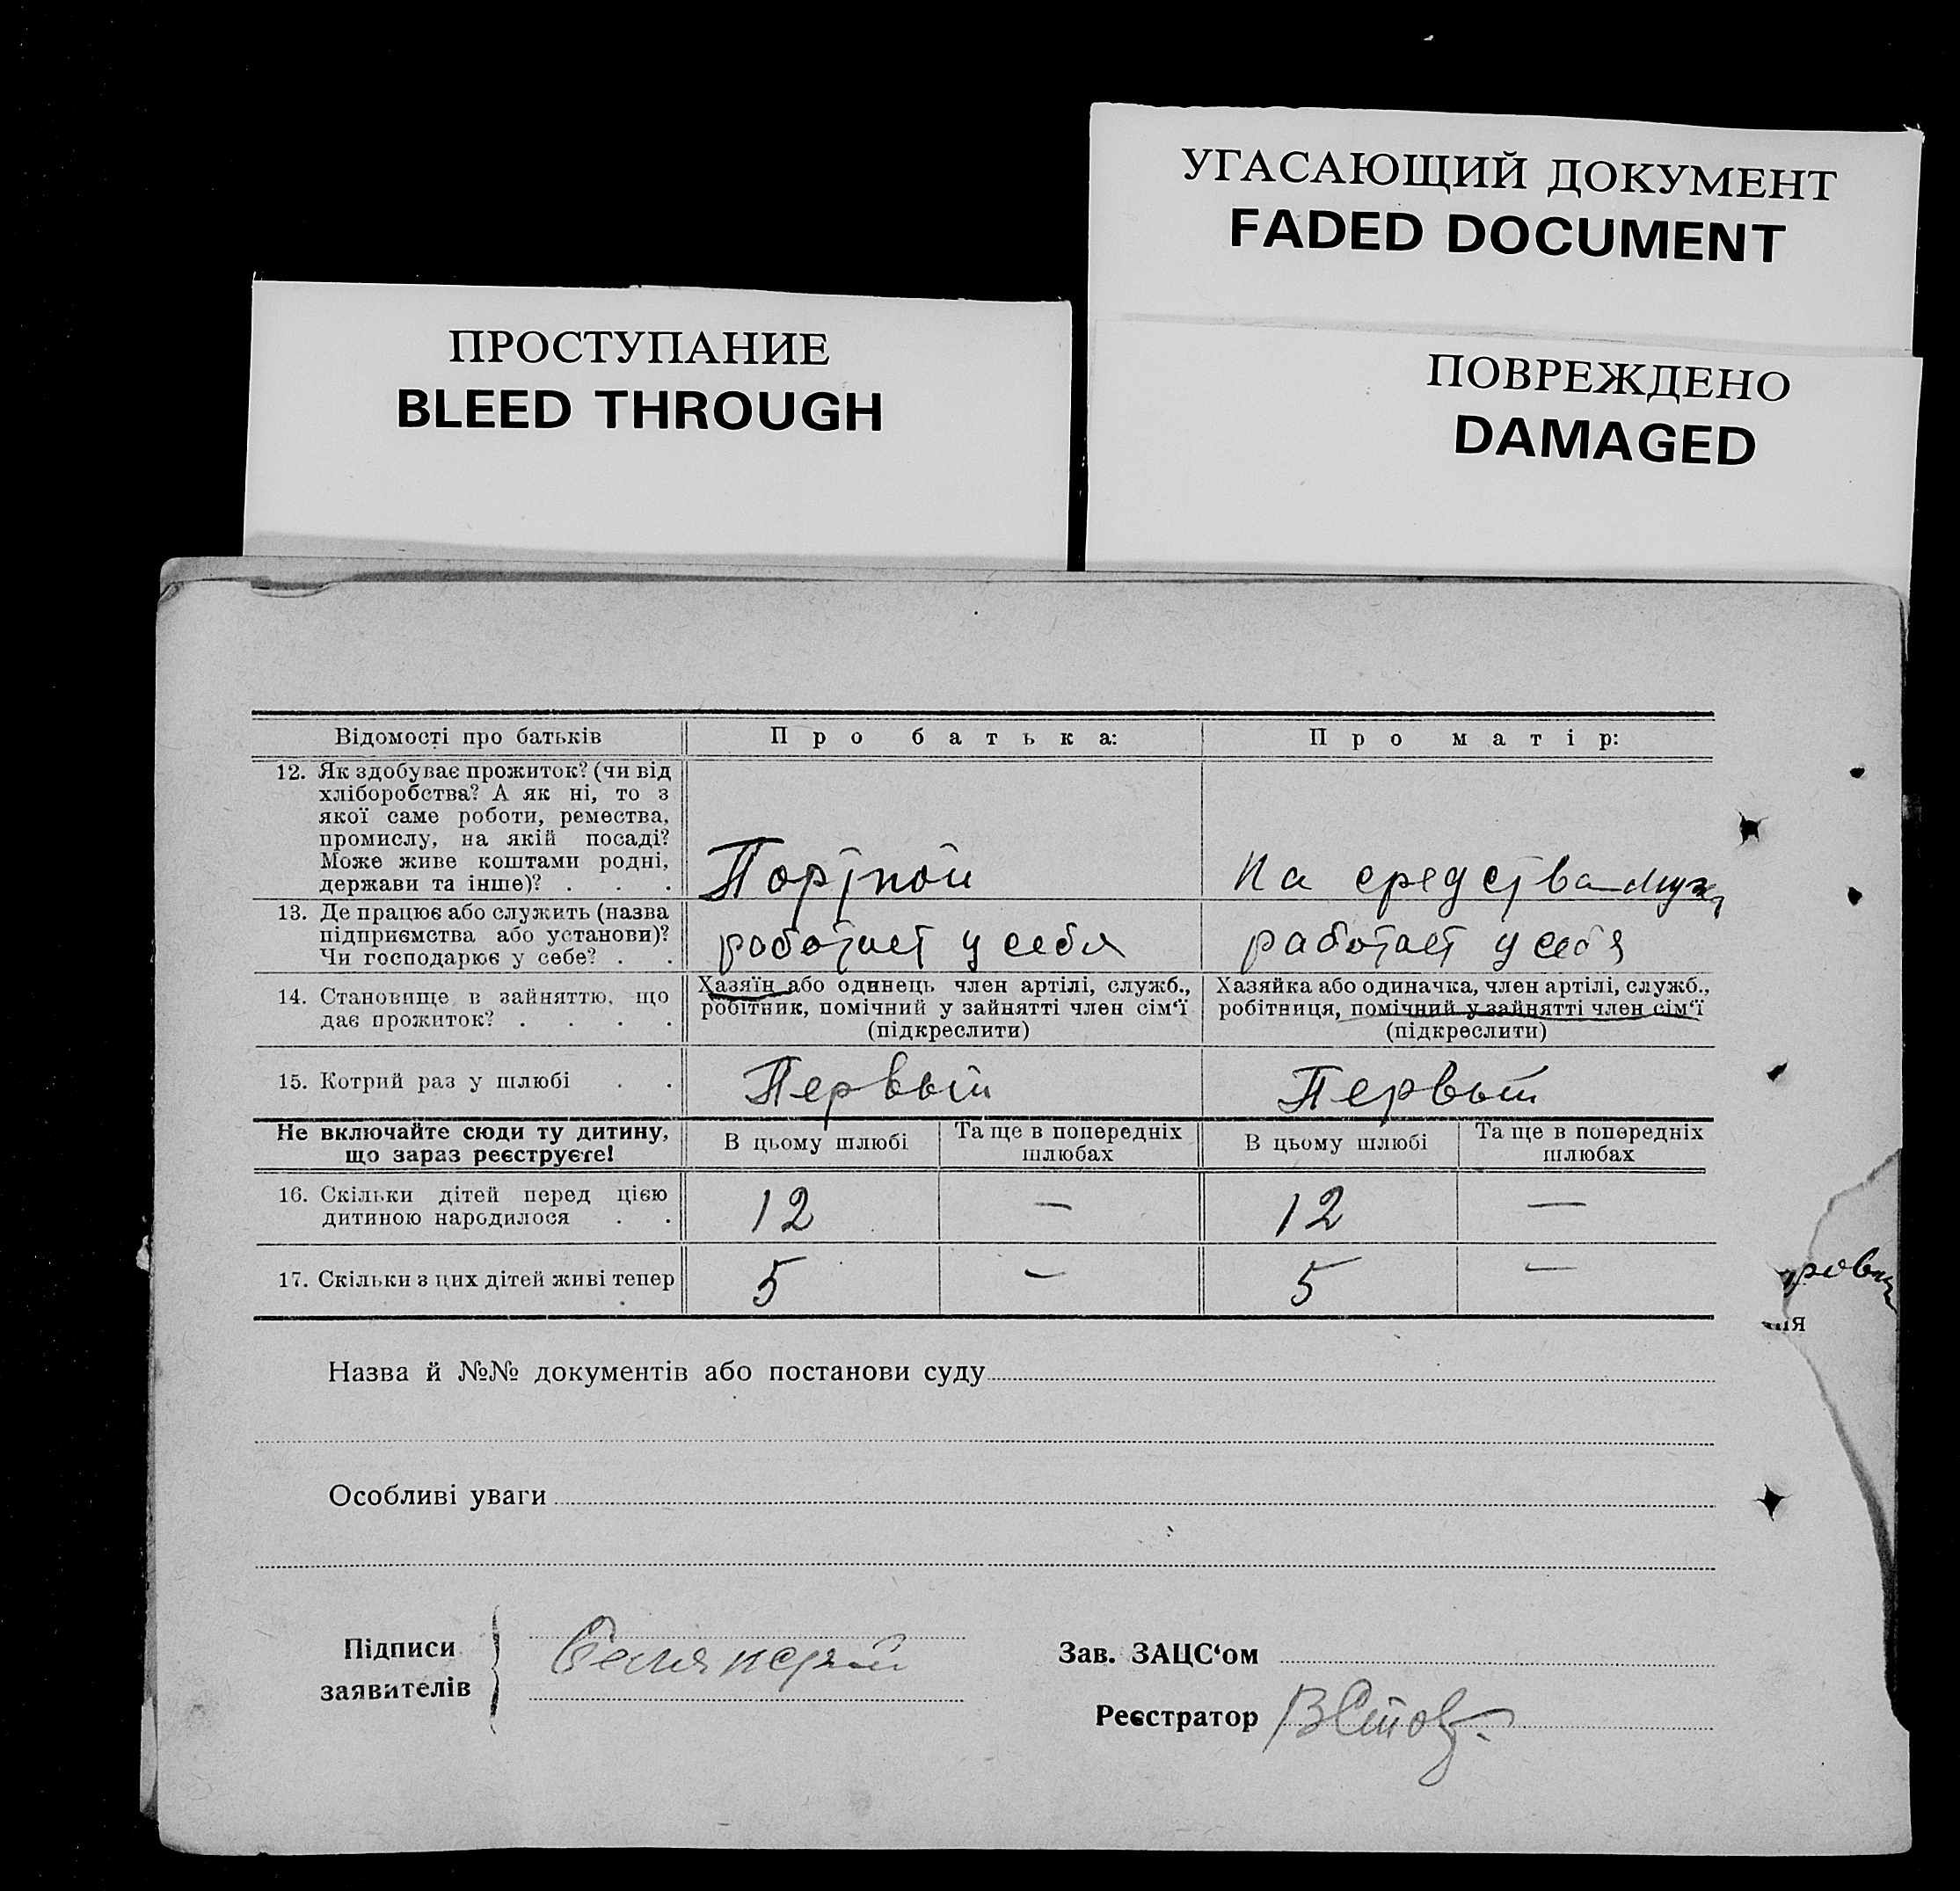 УГАСАЮЩИЙ ДОКУМЕНТ
FADED DOCUMENT
ПРОСТУПАНИЕ
BLEED THROUGH
ПОВРЕЖДЕНО
DAMAGED
Відомості про батьків
Про батька:
Про матір:
12. Як здобуває прожиток? (чи від
хліборобства? А як ні, то з
якої саме роботи, ремества,
промислу, на якій посаді?
Може живе коштами родні,
держави та інше)? . . .
Портной
На средства мужа
13. Де працює або служить (назва
підприємства або установи)?
Чи господарює у себе? . .
работает у себя
работает у себя
14. Становище в зайняттю, що
дає прожиток? . . . .
Хазяїн або одинець член артілі, служб.,
робітник, помічний у зайнятті член сім‘ї
(підкреслити)
Хазяйка або одиначка, член артілі, служб.,
робітниця, помічний у зайнятті член сім‘ї
(підкреслити)
15. Котрий раз у шлюбі . .
Первый
Первый
Не включайте сюди ту дитину,
що зараз реєструєте!
В цьому шлюбі
Та ще в попередніх
шлюбах
В цьому шлюбі
Та ще в попередніх
шлюбах
16. Скільки дітей перед цією
дитиною народилося . .
12
—
12
—
17. Скільки з цих дітей живі тепер
5
—
5
—
Назва й №№ документів або постанови суду
Особливі уваги
Підписи
заявителів
Зав. ЗАЦС‘ом
Реєстратор